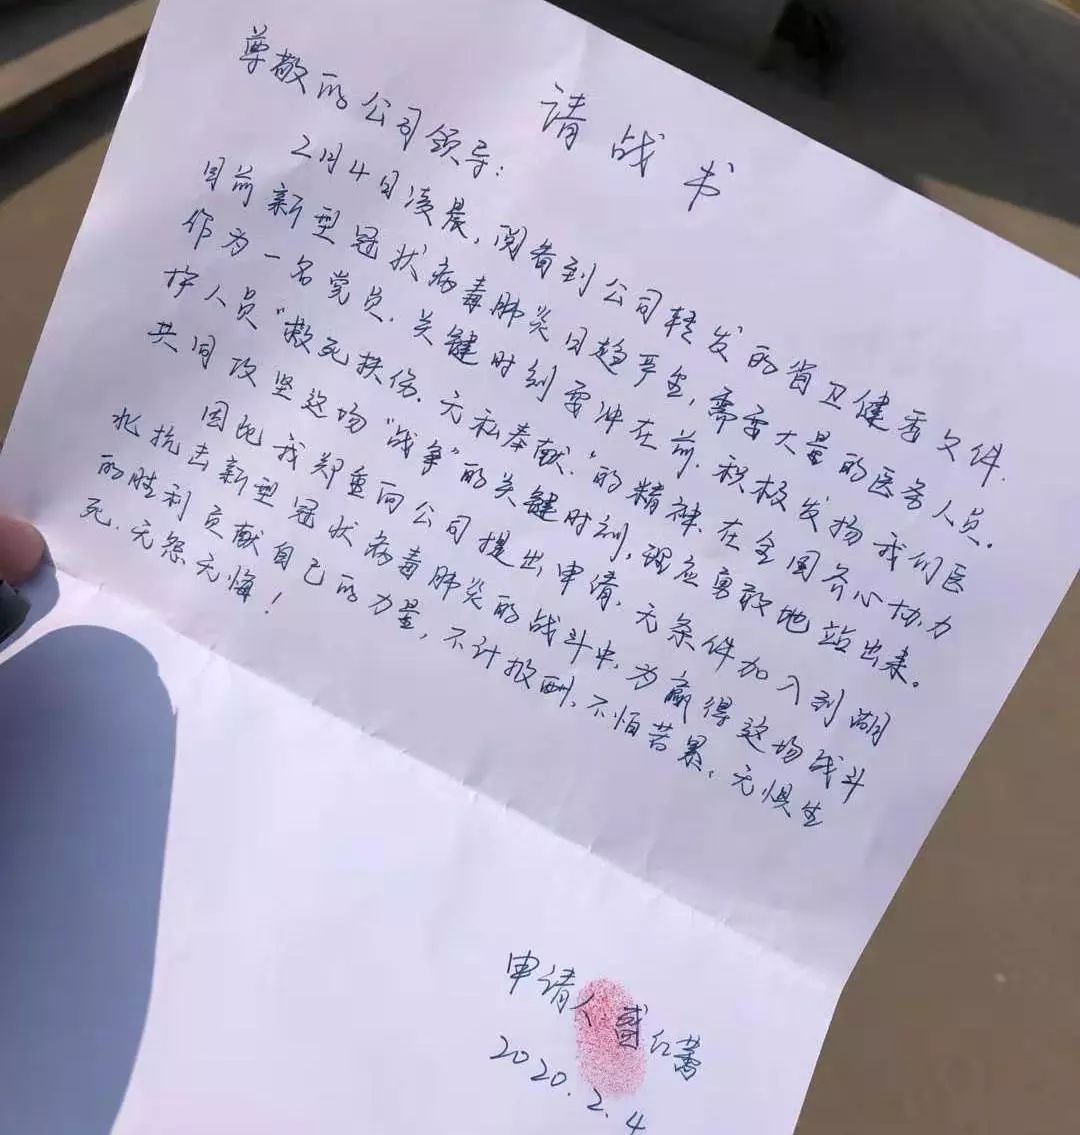 请战书
尊敬的公司领导：
2月4日凌晨，阅看到公司转发的省卫健委文件.
目前新型冠状病毒肺炎日趋严重，需要大量的医务人员。
作为一名党员.关键时刻要冲在前.积极发扬我们医
护人员“救死扶伤.无私奉献.”的精神.在全国齐心协力
共同攻坚这场“战争”的关键时刻，理应勇敢地站出来。
因此我郑重向公司提出申请，无条件加入到湖
北抗击新型冠状病毒肺炎的战斗中，为赢得这场战斗
的胜利贡献自己的力量，不计报酬、不怕苦累、无惧生
死.无怨无悔！
申请人：红
2020.2.4